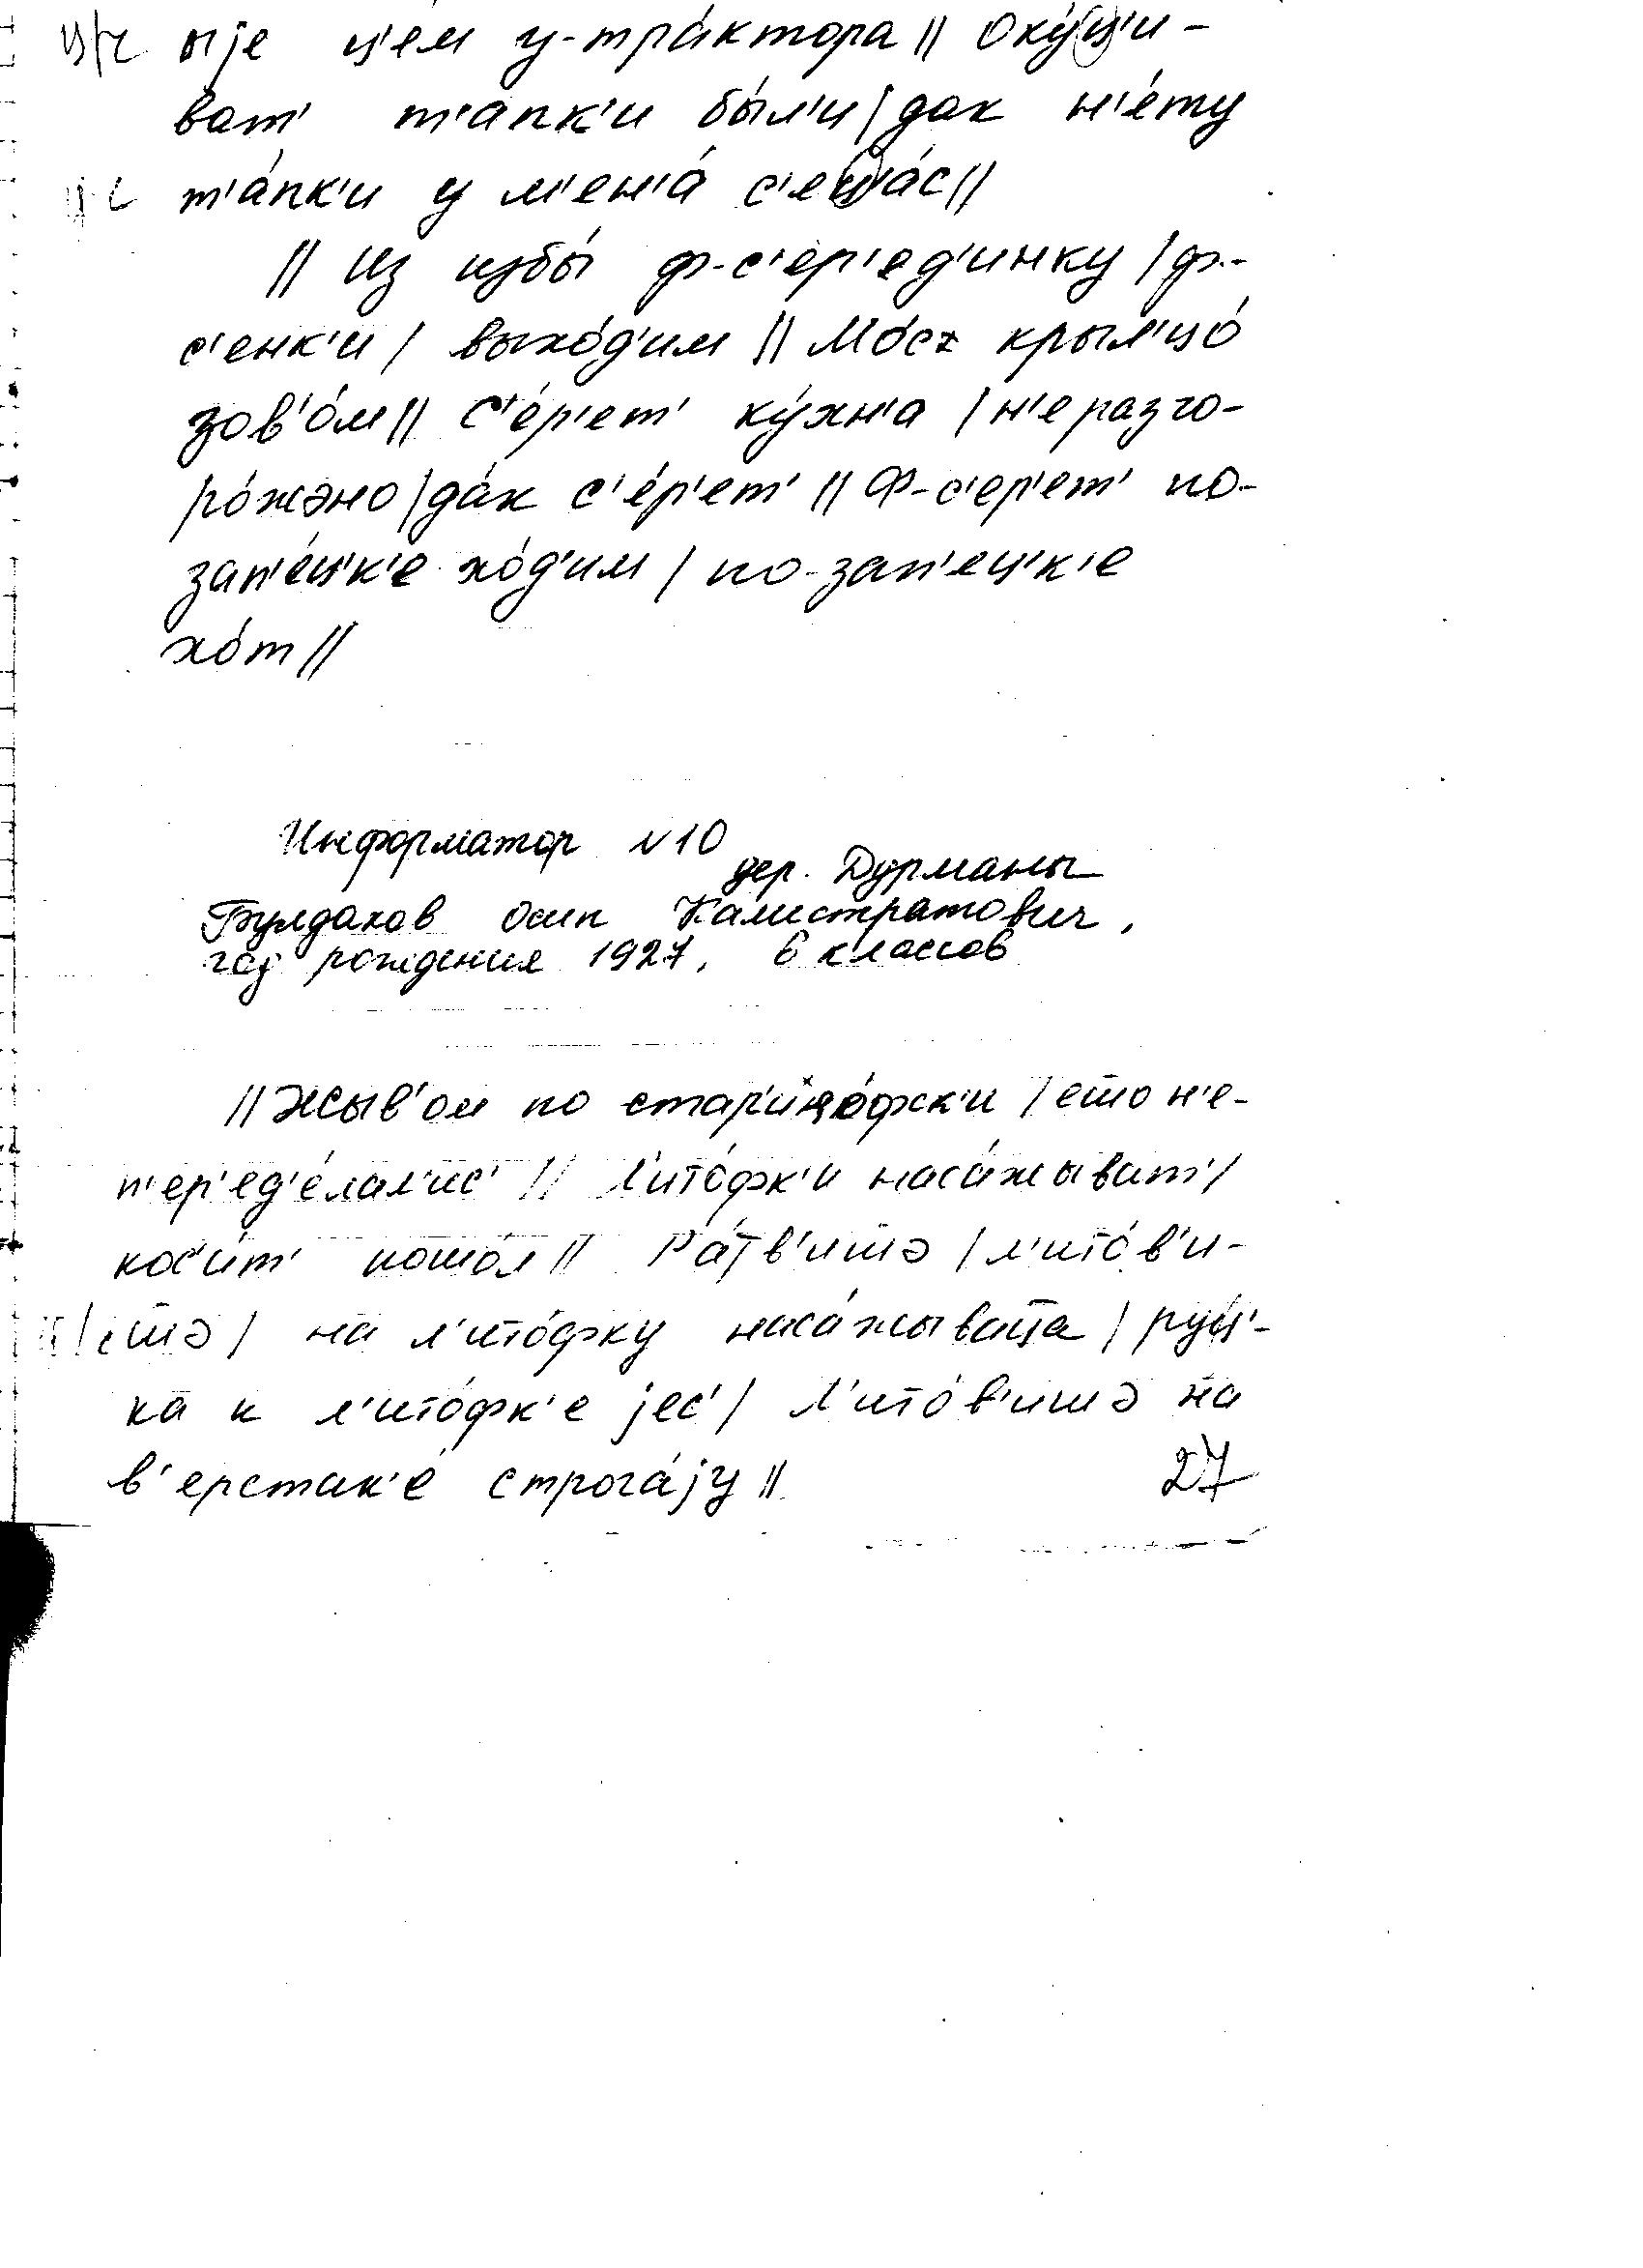 ц/ч ыjе ц'ем у-тра́ктора || Оку́ц'и-
ват' т'апк'и бы́л'и | дак н'е́ту
т'а́пк'и у м'ен'а́ с'ец'а́с ||
|| Из избы́ ф-с'ер'ед'инку | ф-
с'енк'и | выхо́д'им || Мо́ск крыл'цо́
зов'о́м || С'е́р'ет' ку́хн'а | н'е разго-
ро́жэно | да́к с'е́р'ет' || Ф-с'ер'ет' по-
зап'е́ц'к'е хо́д'им | по-зап'ец'к'е
хо́т ||
Информатор №10
дер. Дурманы
Булдаков Осип Калистратович,
год рождения 1927, 6 классов
|| Жыв'ом по стар'ико́фск'и | ето н'е-
п'ер'ед'е́лал'ис' || Л'ито́фк'и наса́жыват' |
кос'и́т' пошо́л || Ра́тв'ишэ | л'ито́в'и-
шэ | на л'ито́фку наса́жываца | руц'-
ка к л'ито́фк'е jес' | Л'ито́в'ишэ на
в'ерстак'е́ строга́jу ||
27